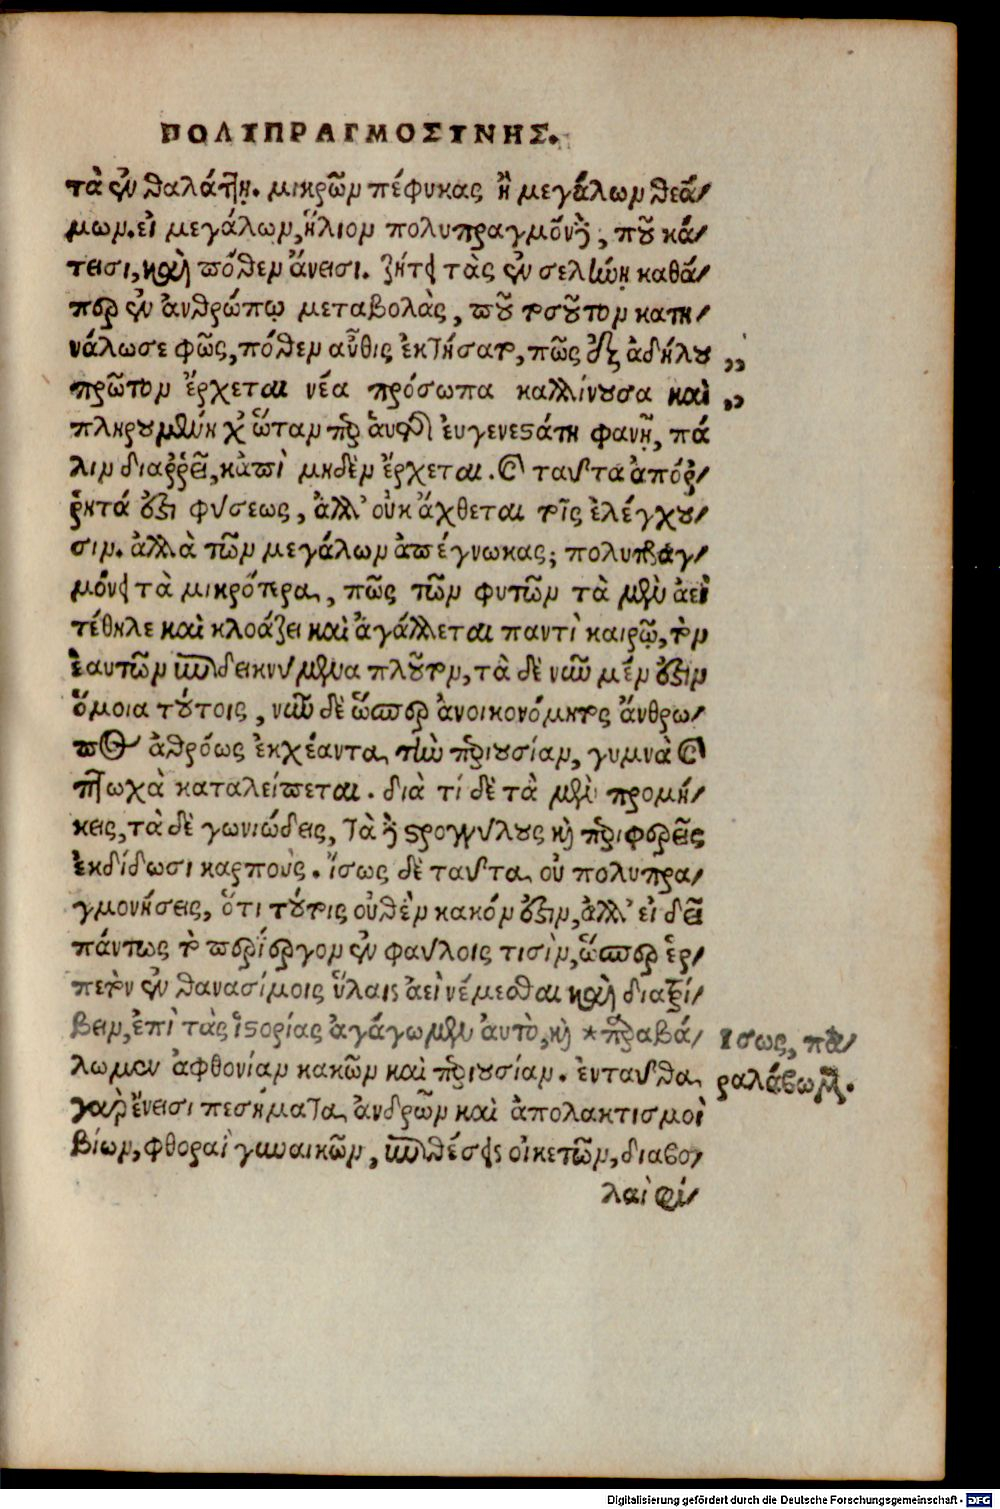 ΠΟΛΥΠΡΑΓΜΟΣΥΝΗΣ.
τὰ ἐν θαλάττῃ. μικρῶν πέφυκας ἢ μεγάλων θεά-
μων. εἰ μεγάλων, ἥλιον πολυπραγμόνει, ποῦ κά-
τεισι, καὶ πόθεν ἄνεισι. ζήτει τὰς ἐν σελήνῃ καθά-
περ ἐν ἀνθρώπῳ μεταβολὰς, ποῦ τοσοῦτον κατη-
νάλωσε φῶς, πόθεν αὖθις ἐκτήσατο, πῶς ἐξ ἀδήλου ,,
πρῶτον ἔρχεται νέα πρόσωπα καλλίνουσα καὶ ,,
πληρουμένη χ' ὥταν περ αὑτῆς εὐγενεστάτη φανῇ, πά
λιν διαρρεῖ, κἀπὶ μηδὲν ἔρχεται. καὶ ταῦτα ἀπόρ-
ρητά ἐστι φύσεως, ἀλλ' οὐκ ἄχθεται τοῖς ἐλέγχου-
σιν. ἀλλὰ τῶν μεγάλων ἀπέγνωκας; πολυπραγ-
μόνει τὰ μικρότερα, πῶς τῶν φυτῶν τὰ μὲν ἀεὶ
τέθηλε καὶ κλοάζει καὶ ἀγάλλεται παντὶ καιρῷ, τὸν
ἑαυτῶν ἐπιδεικνύμενα πλοῦτον, τὰ δὲ νῦν μέν ἐστιν
ὅμοια τούτοις, νῦν δὲ ὥσπερ ἀνοικονόμητος ἄνθρω-
πος ἀθρόως ἐκχέαντα τὴν περιουσίαν, γυμνὰ καὶ
πτωχὰ καταλείπεται. διὰ τί δὲ τὰ μὲν προμή-
κεις, τὰ δὲ γωνιώδεις, τὰ δὲ στρογγύλους καὶ περιφερεῖς
ἐκδίδωσι καρπούς. ἴσως δὲ ταῦτα οὐ πολυπρα-
γμονήσεις, ὅτι τούτοις οὐθὲν κακόν ἐστιν, ἀλλ' εἰ δεῖ
πάντως τὸ περίεργον ἐν φαύλοις τισὶν, ὥσπερ ἑρ-
πετὸν ἐν θανασίμοις ὕλαις ἀεὶ νέμεσθαι καὶ διατρί-
βειν, ἐπὶ τὰς ἱστορίας ἀγάγωμεν αὐτὸ, καὶ *παραβά-
λωμεν ἀφθονίαν κακῶν καὶ περιουσίαν. ἐνταῦθα
γὰρ ἔνεισι πεσήματα ἀνδρῶν καὶ ἀπολακτισμοὶ
βίων, φθοραὶ γυναικῶν, ἐπιθέσεις οἰκετῶν, διαβο-
λαὶ φί-
Ἴσως, πα-
ραλάβωμεν.
Digitalisierung gefördert durch die Deutsche Forschungsgemeinschaft - DFG